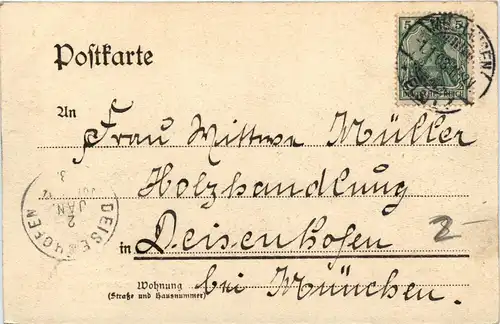 Postkarte
5 5
An
Frau Wittwe Müller
Holzhandlung
in Deisenhofen
bei München.
Wohnung
(Straße und Hausnummer)
DEISENHOFEN
2
JAN.
2